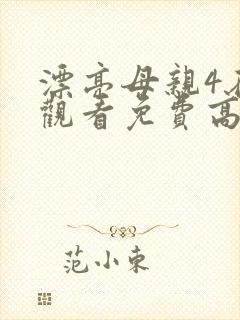 漂亮母親4
觀看免費高
范小東